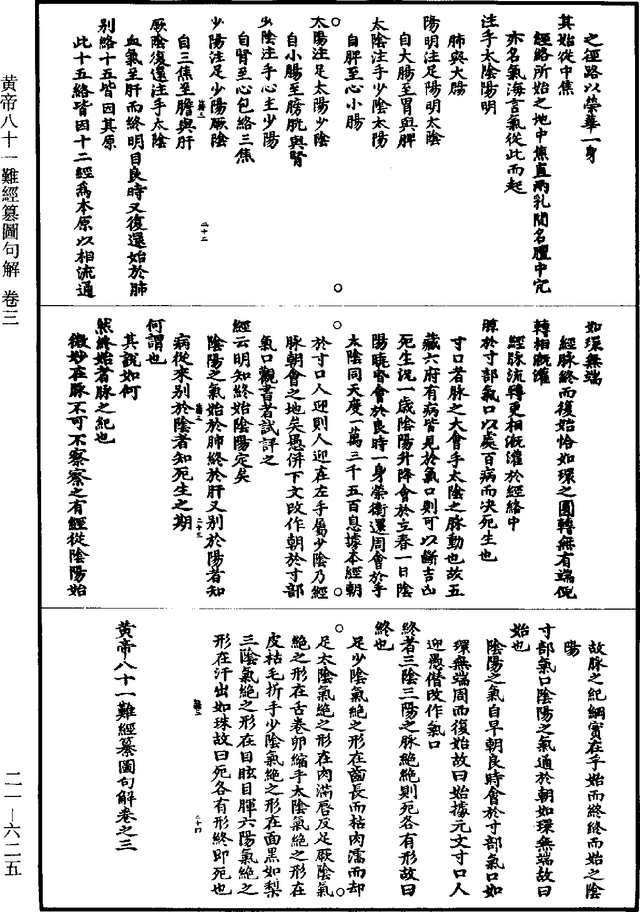 黃帝八十一難經纂圖句解 卷三
二一—六二五
之徑路以榮華一身
其始從中焦
經絡所始之地中焦直兩乳間名膻中穴
亦名氣海言氣從此而起
注手太陰陽明
肺與大腸
陽明注足陽明太陰
自大腸至胃與脾
太陰注手少陰太陽
自脾至心小腸
太陽注足太陽少陰
自小腸至膀胱與腎
少陰注手心主少陽
自腎至心包絡三焦
少陽注足少陽厥陰
自三焦至膽與肝
厥陰復還注手太陰
血氣至肝而終明日良時又復還始於肺
別絡十五皆因其原
此十五絡皆因十二經為本原以相流通
如環無端
經脉終而復始恰如環之圓轉無有端倪
轉相溉灌
經脉流轉更相溉灌於經絡中
朝於寸部氣口以處百病而决死生也
寸口者脉之大會手太陰之脉動也故五
藏六府有病皆見於氣口則可以斷吉凶
死生況一歲陰陽升降會於立春一日陰
陽曉昏會於良時一身榮衛還周會於手
太陰同天度一萬三千五百息據本經朝
於寸口人迎則人迎在左手屬少陰乃經
脉朝會之地矣愚併下文改作朝於寸部
氣口觀書者試評之
經云明知終始陰陽定矣
陰陽之氣始於肺終於肝又別於陽者知
病從來別於陰者知死生之期
何謂也
其說如何
然終始者脉之紀也
微妙在脉不可不察察之有經從陰陽始
故脉之紀綱實在乎始而終終而始之陰
陽
寸部氣口陰陽之氣通於朝如環無端故曰
始也
陰陽之氣自早朝良時會於寸部氣口如
環無端周而復始故曰始據元文寸口人
迎愚僭改作氣口
終者三陰三陽之脉絕絕則死各有形故曰
終也
足少陰氣絕之形在齒長而枯肉濡而却
足太陰氣絕之形在肉滿唇反足厥陰氣
絕之形在舌卷卵縮手太陰氣絕之形在
皮枯毛折手少陰氣絕之形在面黑如梨
三陰氣絕之形在目眩目暉六陽氣絕之
形在汗出如珠故曰死各有形終即死也
黃帝八十一難經纂圖句解卷之三